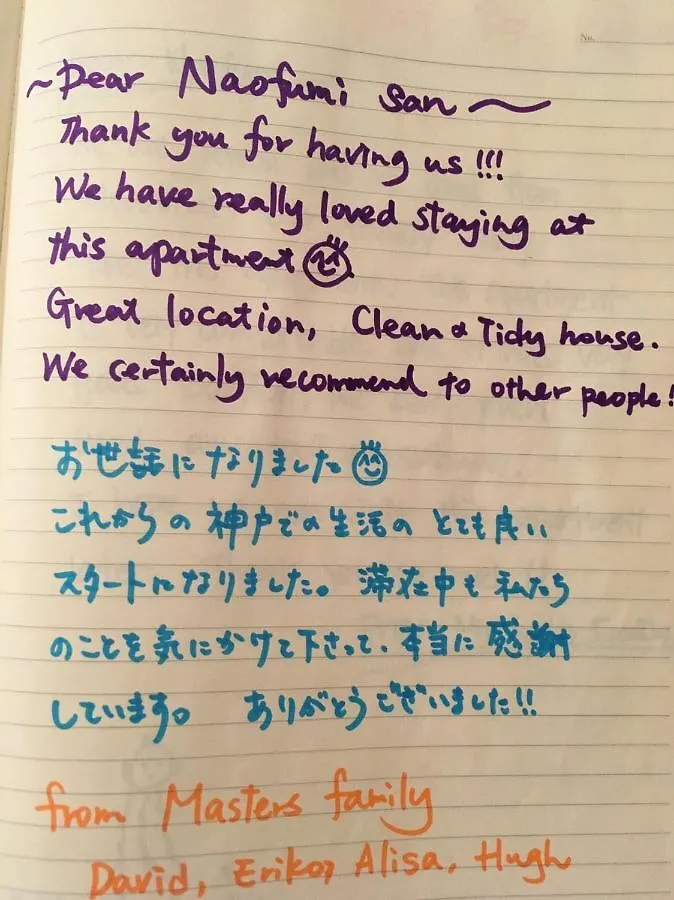 ~Dear Naofumi san~
Thank you for having us!!!
We have really loved staying at
this apartment
Great location, Clean & Tidy house.
We certainly recommend to other people!
お世話になりました
これからの神戸での生活のとても良い
スタートになりました。滞在中も私たち
のことを気にかけて下さって、本当に感謝
しています。 ありがとうございました!!
from Masters family
David, Eriko, Alisa, Hugh